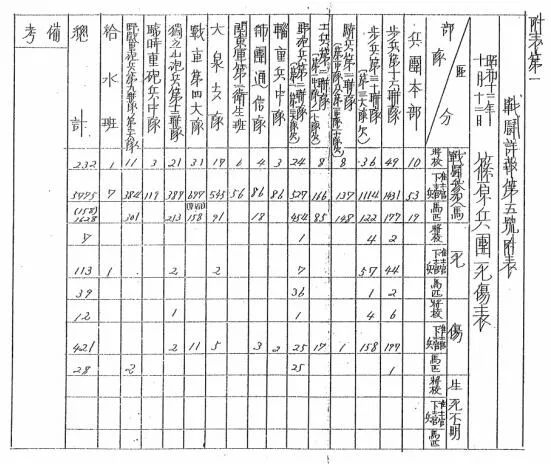 附表第一
戰鬪詳報第五號附表
昭和十三年
篠原兵團死傷表
部隊 區分 戰鬪參加人馬 將校 准士官下士官兵 馬匹 死 將校 准士官下士官兵 馬匹 傷 將校 准士官下士官兵 馬匹 生死不明 將校 准士官下士官兵 馬匹
兵團本部 10 53 19
步兵第十六聯隊 49 1431 177 2 44 2 6 177 1
步兵第三十聯隊 36 1114 122 4 57 1 4 158
騎兵第二聯隊 8 137 148 1
工兵第二聯隊 8 166 85 17
野砲兵第二聯隊 24 527 454 1 7 36 1 25 25
輜重兵中隊 3 86 2
師團通信隊 4 86 18 3
關東軍第一衛生班 6 56
大泉支隊 17 545 91 2 5
戰車第四大隊 31 677 158 11
獨立山砲兵第十二聯隊 21 389 213 2 1 2
臨時重砲兵中隊 3 119
野戰重砲兵第九聯隊 11 384 301 2
給水班 1 7 1
總計 232 5775 (158) 1628 7 113 39 12 421 28
備考